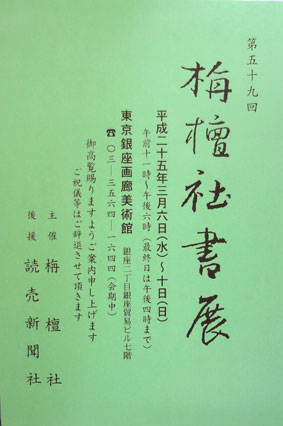 第五十九回
栴檀社書展
平成二十五年三月六日(水)～十日(日)
午前十一時～午後六時(最終日は午後四時まで)
東京銀座画廊美術館
銀座二丁目銀座貿易ビル七階
☎〇三―三五六四―一六四四(会期中)
御高覧賜りますようご案内申し上げます
ご祝儀等はご辞退させて頂きます
主催 栴檀社
後援 読売新聞社